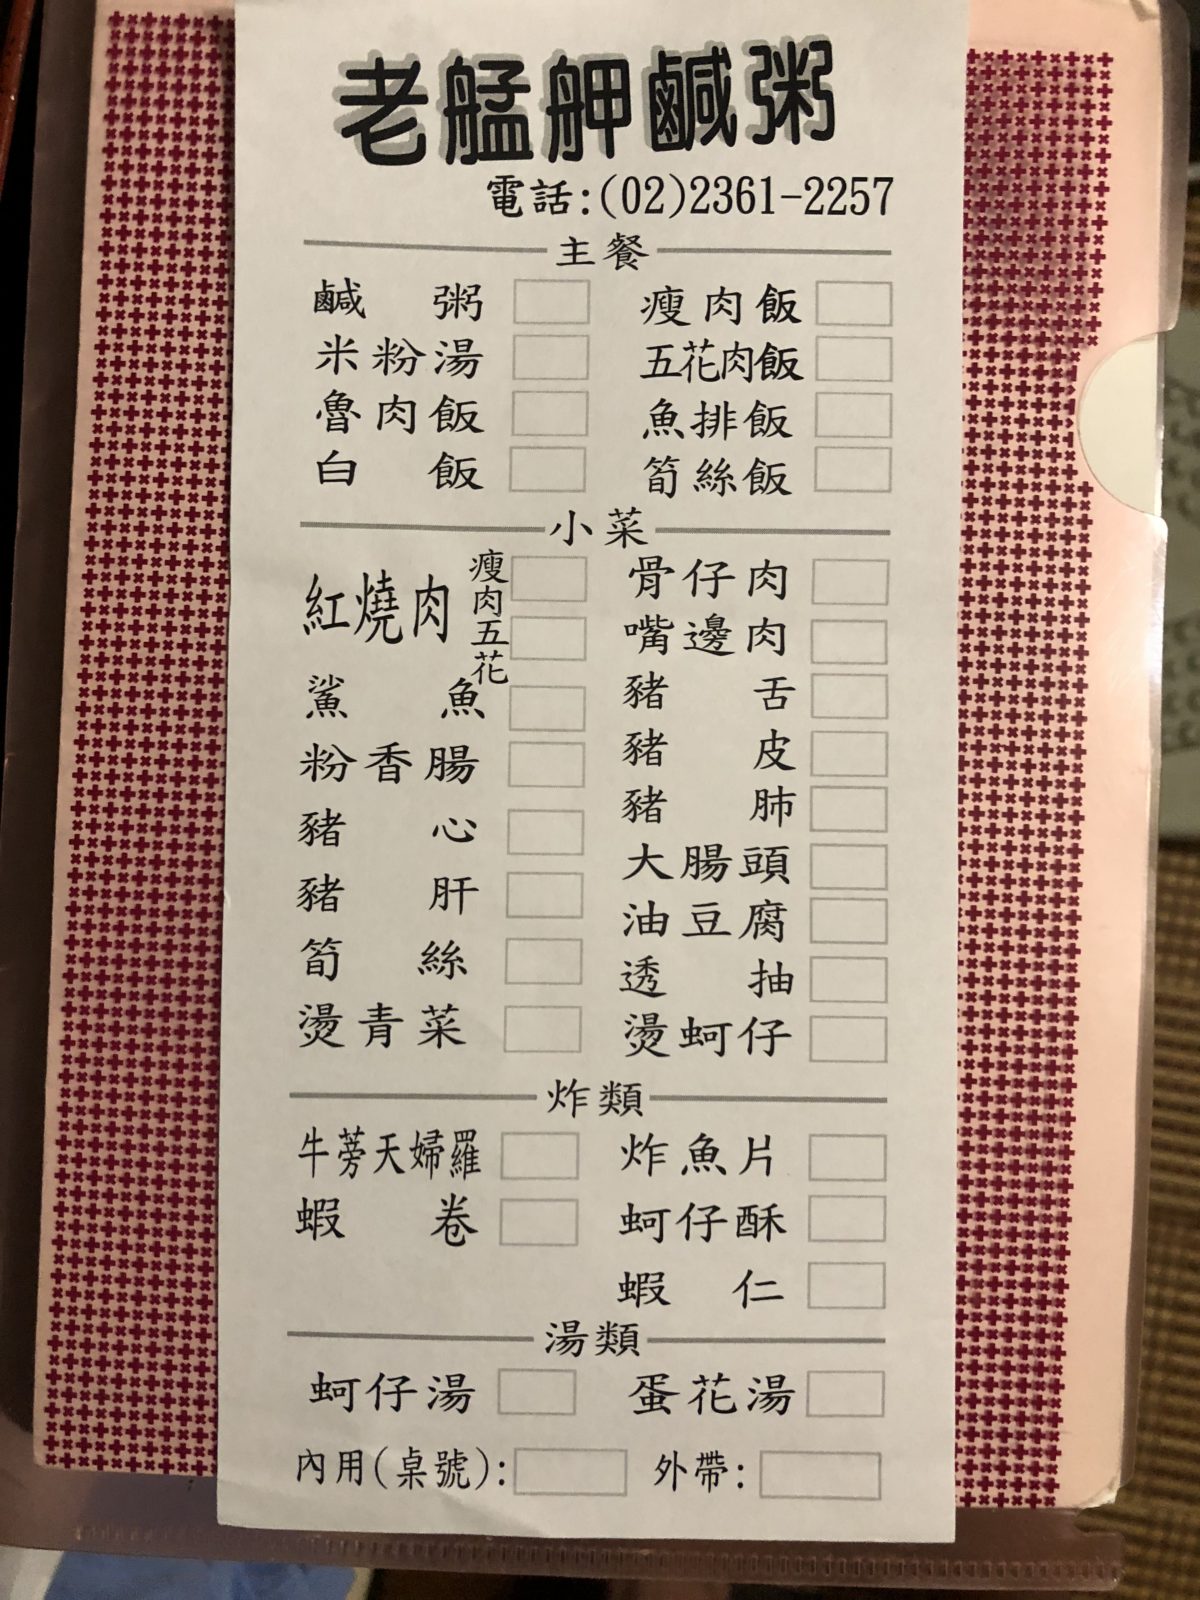 老艋舺鹹粥
電話:(02)2361-2257
主餐
鹹粥 瘦肉飯
米粉湯 五花肉飯
魯肉飯 魚排飯
白飯 筍絲飯
小菜
紅燒肉 瘦肉 五花
鯊魚
粉香腸
豬心
豬肝
筍絲
燙青菜
骨仔肉
嘴邊肉
豬舌
豬皮
豬肺
大腸頭
油豆腐
透抽
燙蚵仔
炸類
牛蒡天婦羅 炸魚片
蝦卷 蚵仔酥
蝦仁
湯類
蚵仔湯 蛋花湯
內用(桌號): 外帶: